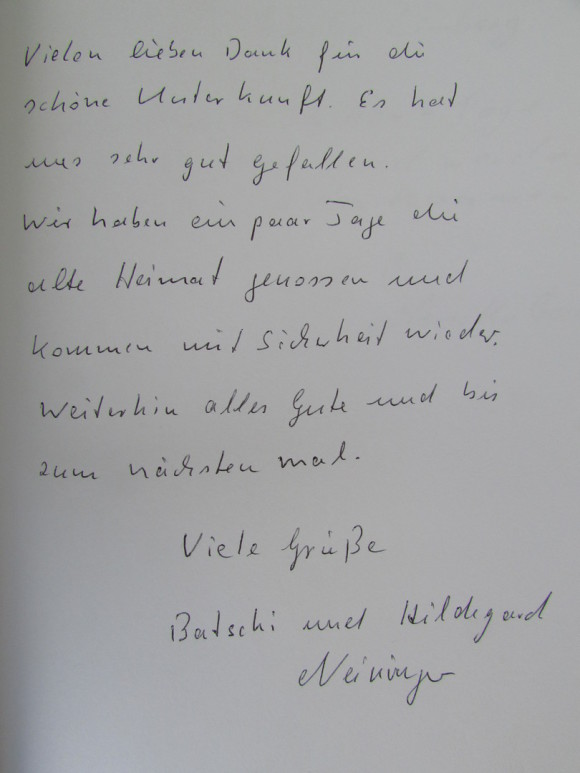 Vielen lieben Dank für die
schöne Unterkunft. Es hat
uns sehr gut gefallen.
Wir haben ein paar Tage die
alte Heimat genossen und
kommen mit Sicherheit wieder.
Weiterhin alles Gute und bis
zum nächsten mal.
Viele Grüße
Batschi und Hildegard
Neininger